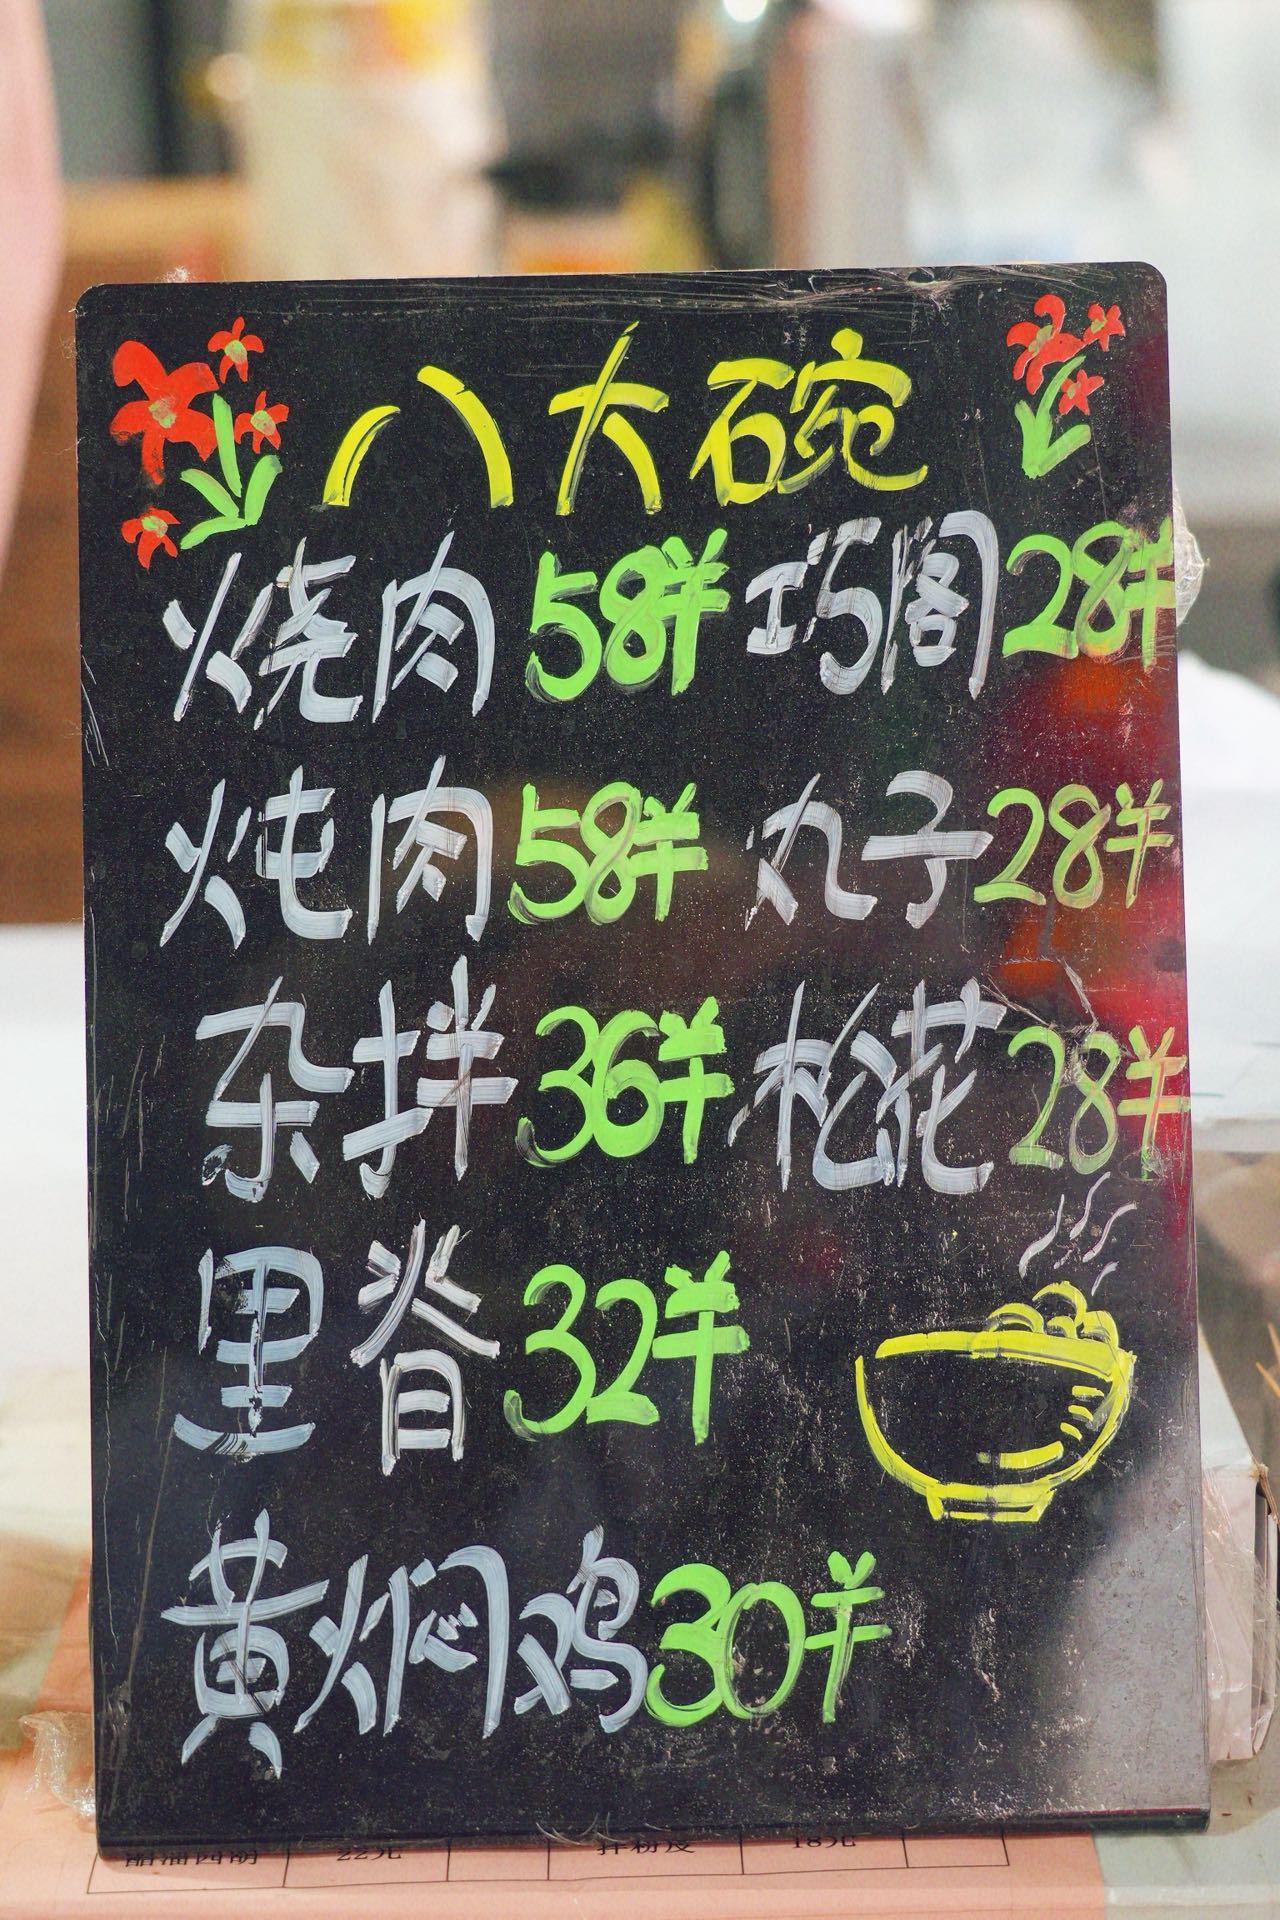 八大碗
烧肉 58¥ 巧阁 28¥
炖肉 58¥ 丸子 28¥
杂拌 36¥ 松花 28¥
里脊 32¥
黄焖鸡 30¥
22元 拌粉皮 18元